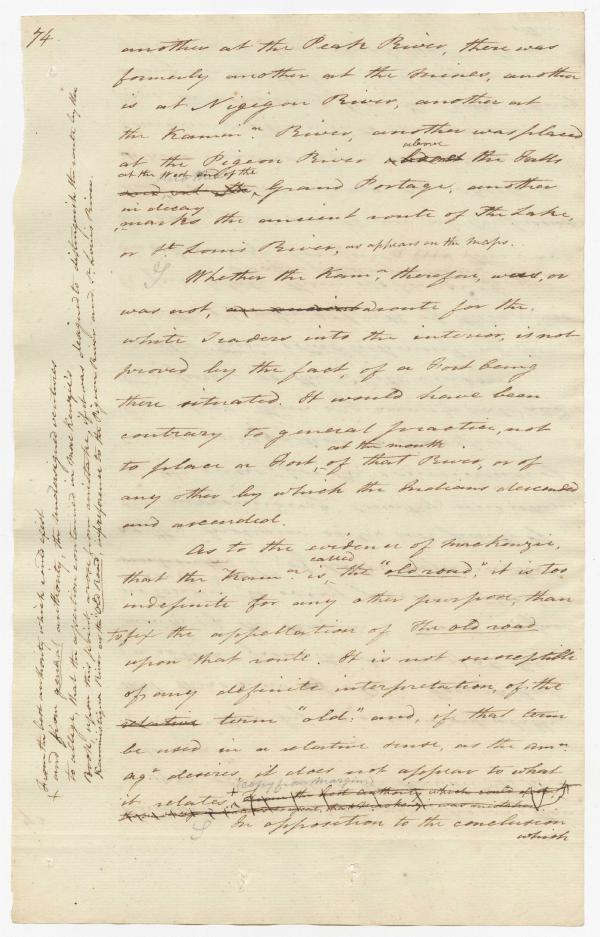 74.
another at the Peak River, there was
formerly another at the mines, another
is at Nipigon River, another at
the Kamin.a River, another was placed
above
at the Pigeon River the Falls
at the West end of the
Grand Portage, another
in decay
marks the ancient route of The Lake,
or St. Louis River, as appears on the maps.
Whether the Kam.a, therefore, was, or
was not, a route for the
white Traders into the interior, is not
proved by the fact, of a Fort being
there situated. It would have been
contrary to general practice, not
at the mouth
to place a Fort, of that River, or of
any other by which the Indians descended
and ascended.
As to the evidence of Mackenzie,
called
that the Kam.a is, the "old road," it is too
indefinite for any other purpose, than
to fix the appellation of the old road
upon that route. It is not susceptible
of any definite interpretation, of the
relative term "old:" and, if that term
be used in a relative sense, as the am.n
ag.t desires, it does not appear to what
(copy from margin)
it relates. + From the best authority which
In opposition to the conclusion
which
From the best authority which could exist
+ and from general authority, the undersigned ventures
to allege, that the assertion contained in MacKenzie's
Book, upon this point, arose from mistake, if it was designed to distinguish the route by the
Kaministiquia River as the Old Road, in preference to the Pigeon River and St. Louis River.